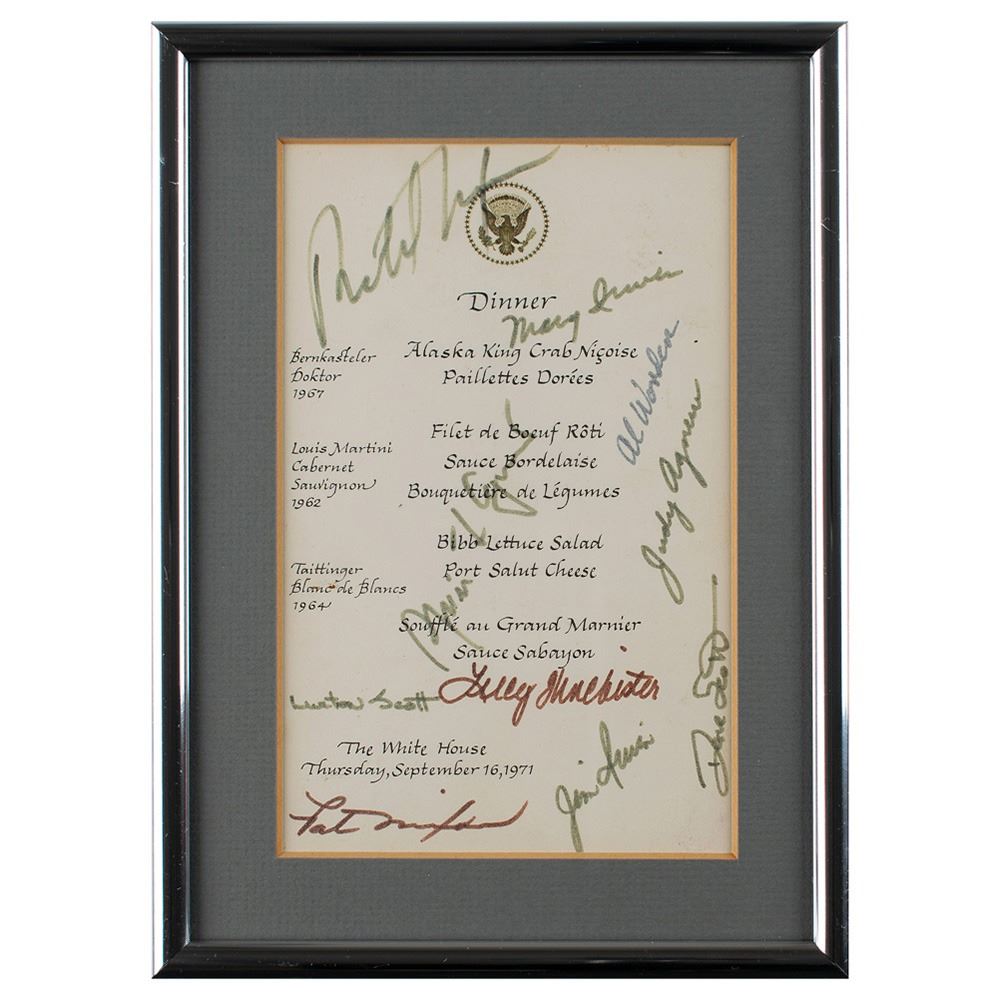 Dinner
Mary Irwin
Bernkasteler
Doktor
1967
Alaska King Crab Niçoise
Paillettes Dorées
Al Worden
Louis Martini
Cabernet
Sauvignon
1962
Filet de Boeuf Rôti
Sauce Bordelaise
Bouquetière de Légumes
Judy Agnew
Taittinger
Blanc de Blancs
1964
Bibb Lettuce Salad
Port Salut Cheese
Soufflé au Grand Marnier
Sauce Sabayon
Lurton Scott
Dave Scott
The White House
Thursday, September 16, 1971
Jim Irwin
Pat Nixon